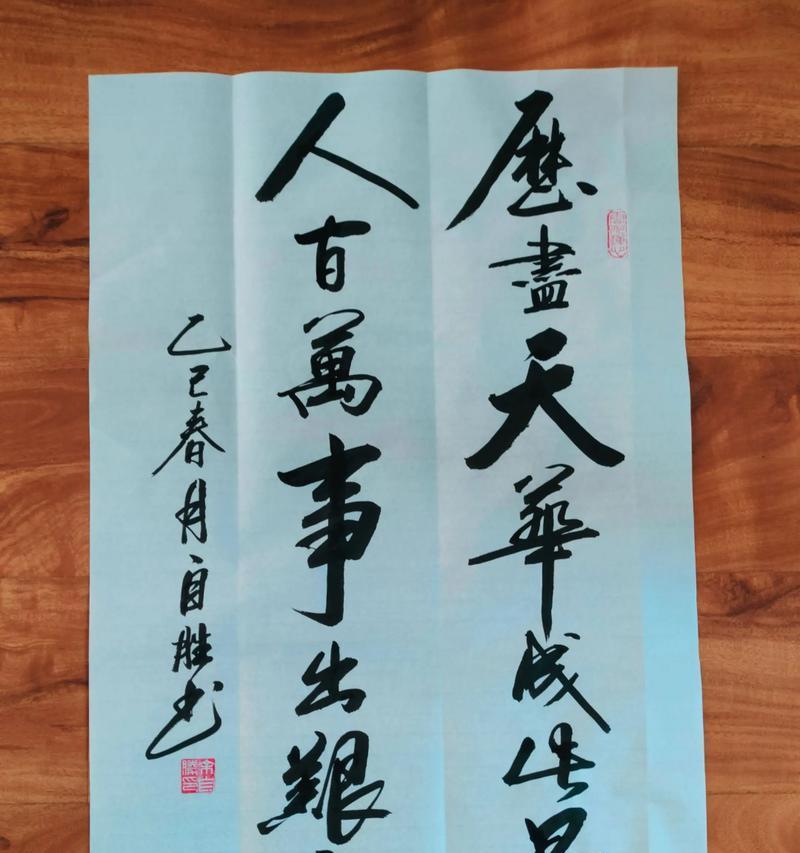 歷盡天華成此景
人間萬事出艱
乙巳春月自胜书